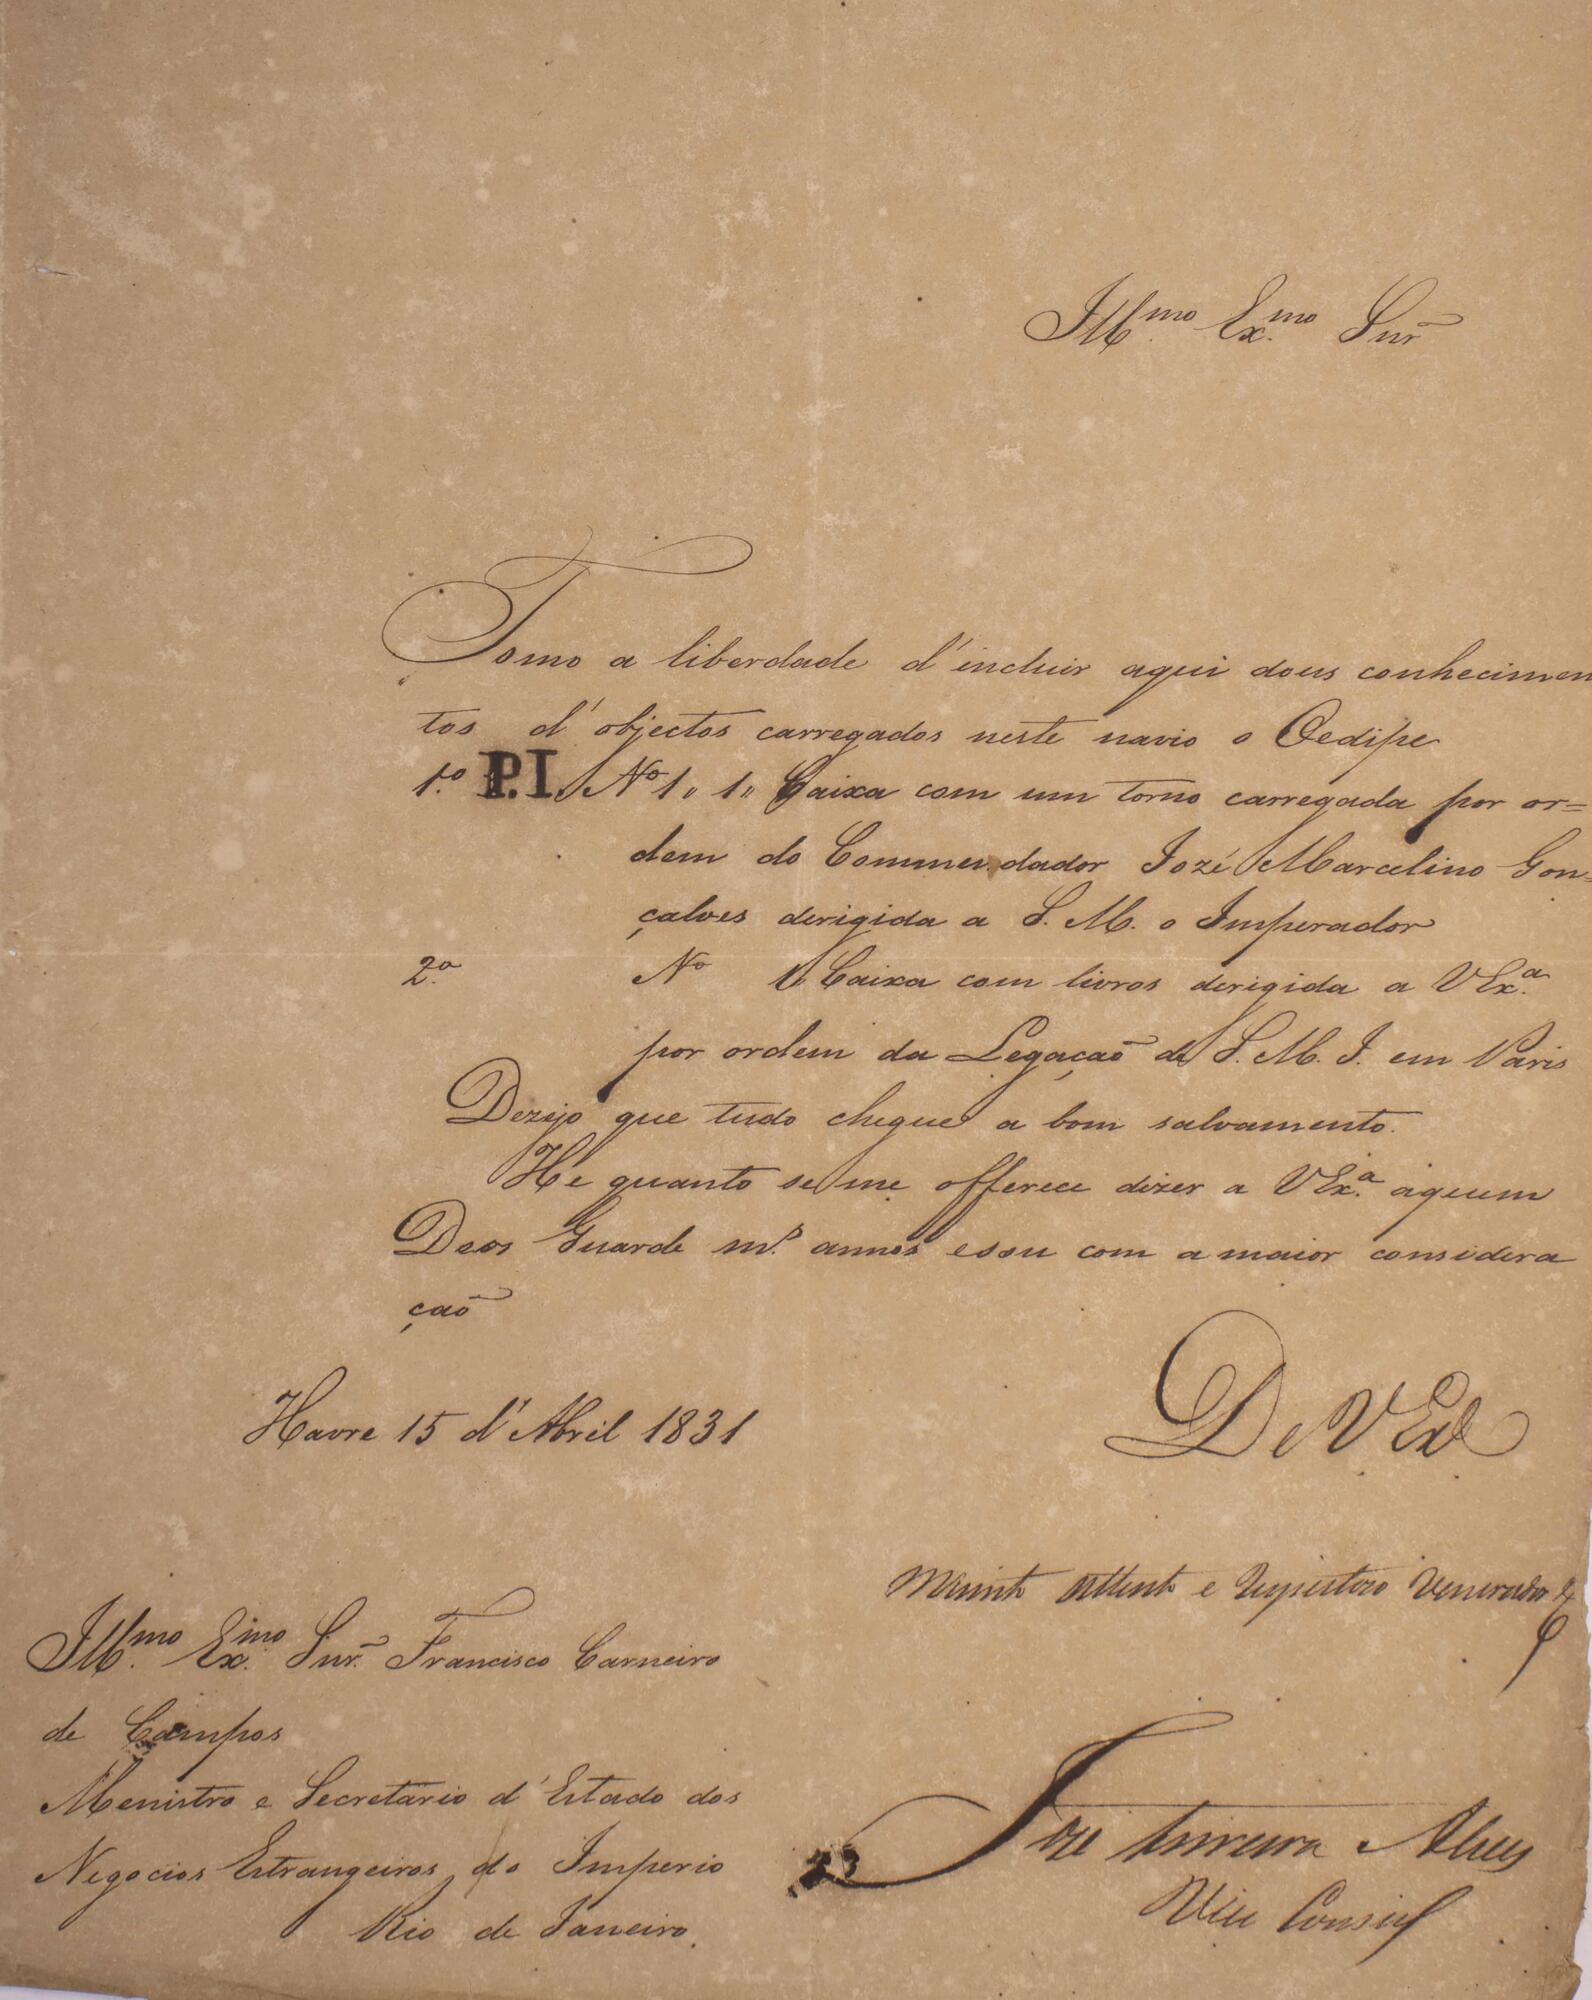 Ill.mo Ex.mo Snr
Tomo a liberdade d'incluir aqui dous conhecimen
tos d'objectos carregados neste navio o Oedipe
1.o P.I. No 1,, 1,, Caixa com um torno carregada por or=
dem do Commendador Jozé Marcelino Gon=
çalves derigida a S. M. o Imperador
2.o No 1 Caixa com livros derigida a V Ex.a
por ordem da Legação de S. M. I. em Paris
Dezejo que tudo chegue a bom salvamento.
He quanto se me offerece dizer a V Ex.a aquem
Deos Guarde m.s annos esou com a maior considera
ção
Havre 15 d'Abril 1831
De V Ex.a
Muinto Attento e Respeitozo Venerador e
Ill.mo Ex.mo Snr. Francisco Carneiro
de Campos
Menistro e Secretario d'Estado dos
Negocios Estrangeiros do Imperio
Rio de Janeiro.
Joze Ferreira Alves
Vice Consul